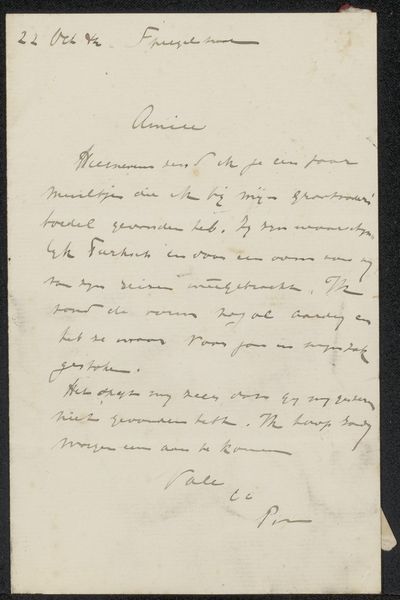 22 Oct 82. Spiegelstraat
Amice
Hiernevens zend ik je een paar
muiltjes die ik bij mijn grootvaders
boedel gevonden heb. Zij zijn waarschijn
lijk Turksch en door een oom van mij
van zijn reizen meegebracht. Ik
vond de vorm nogal aardig en
heb ze maar voor jou in mijn zak
gestoken.
Het spijt mij zeer dat gij mij gisteren
niet gevonden hebt. Ik hoop
morgen eens aan te komen
Vale